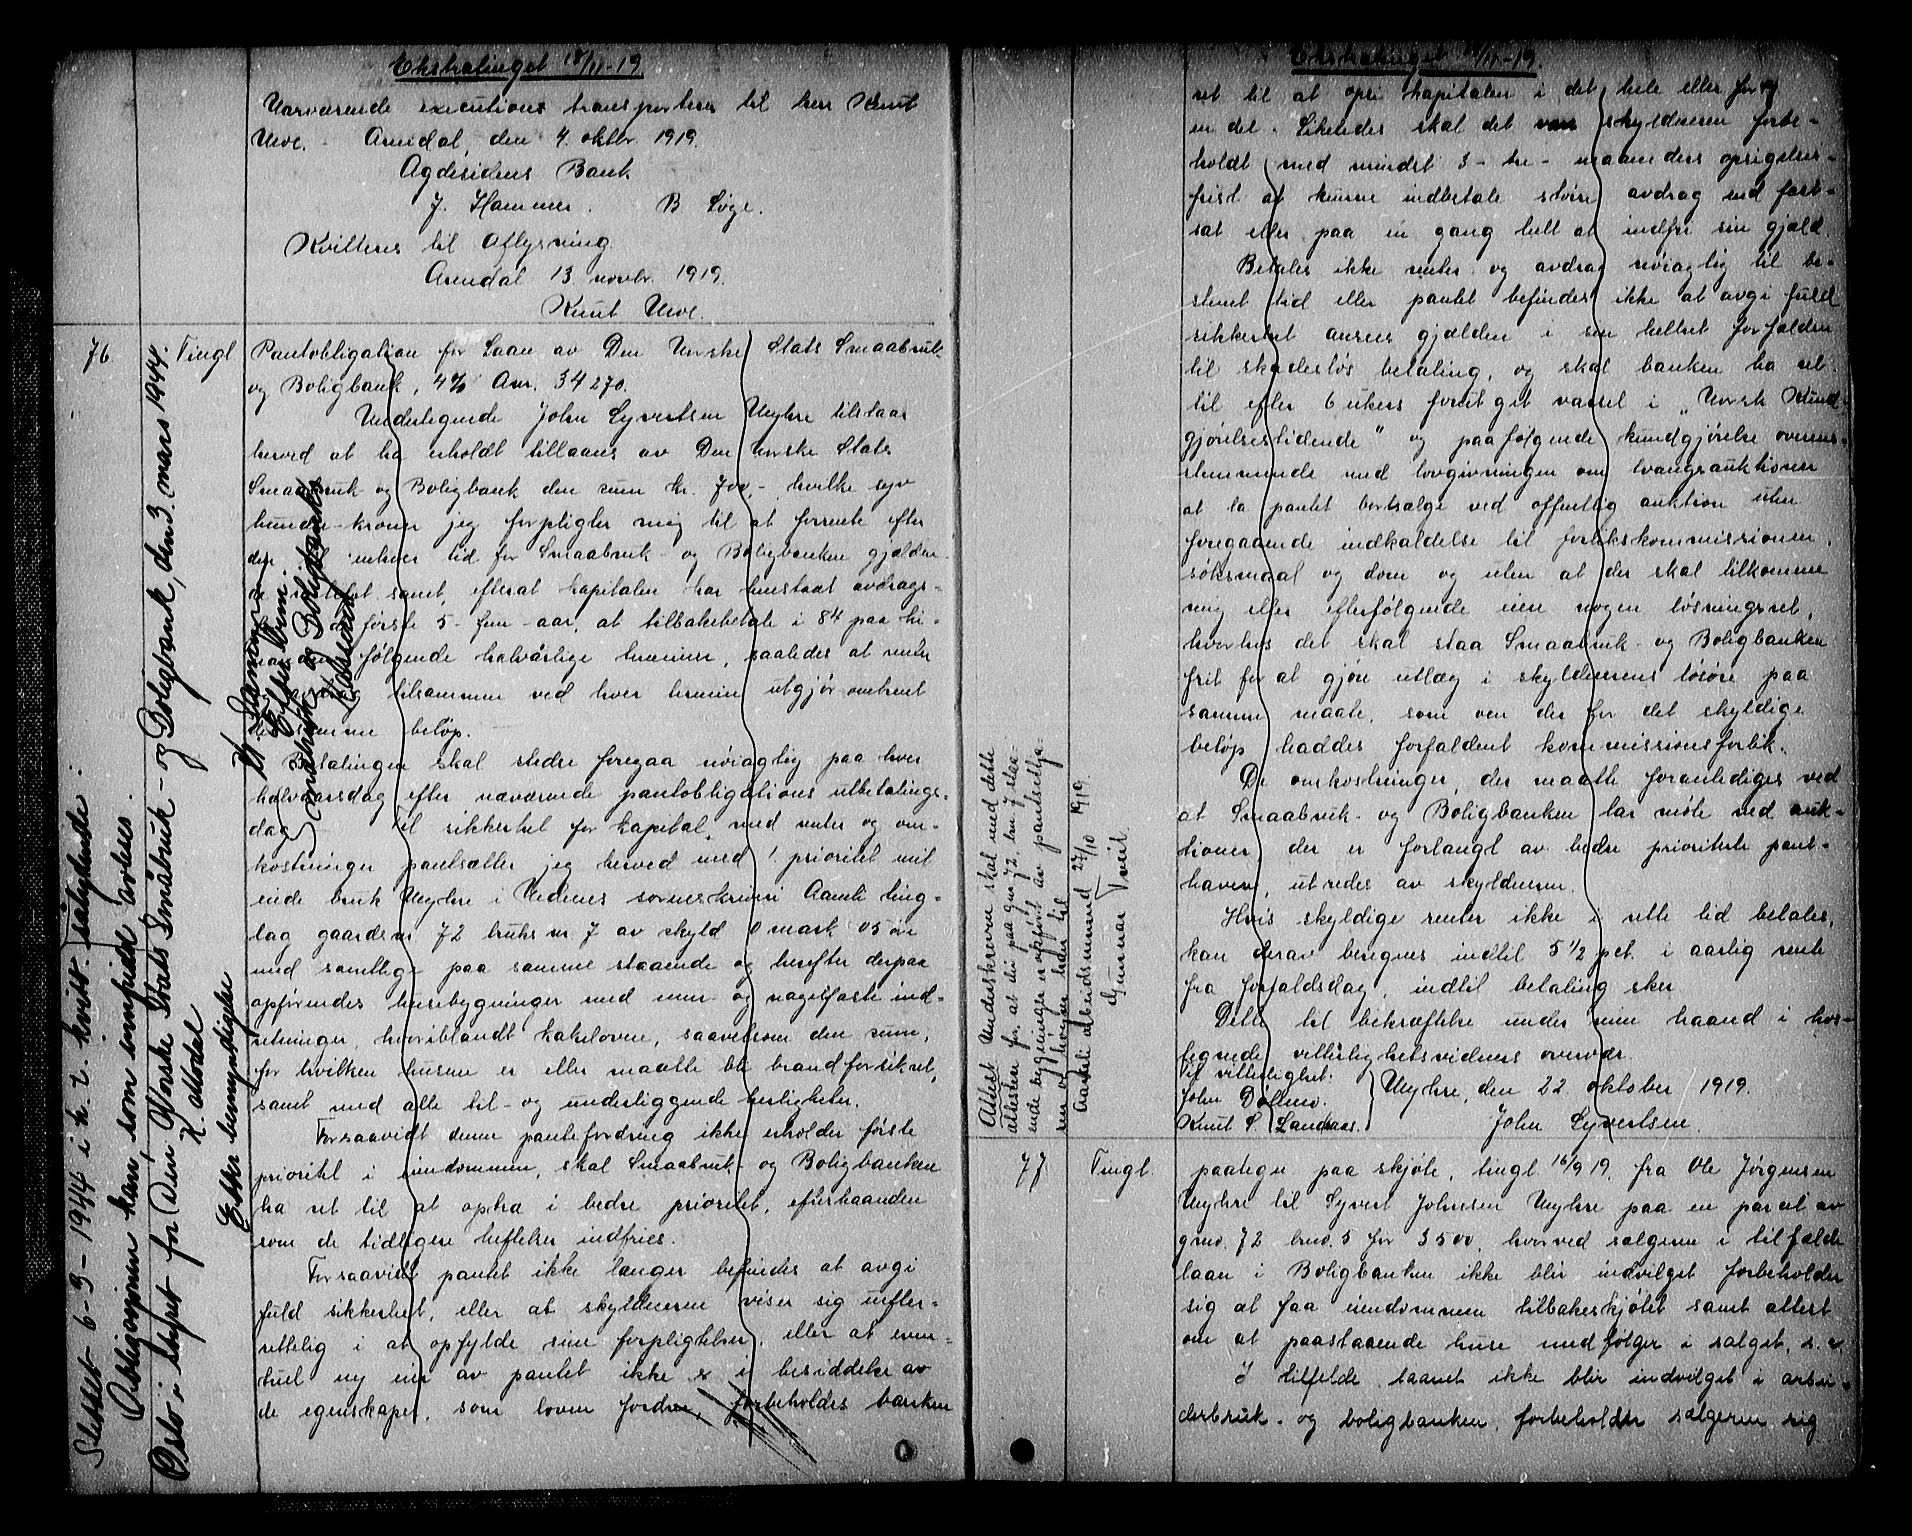 Ekstratinget 18/11-19.
Nærværende executions transporteres til herr Knut
Ueve. Arendal, den 4. oktbr. 1919.
Agdesidens Bank
J. Hammer. B Løge.
Kvitteres til Aflysning.
Arendal 13. novbr. 1919.
Knut Ueve.
76. Tingl Pantobligation for Laan av Den Norske Stats Smaabruk
og Boligbank, 4% Anr. 34270.
Undertegnede John Syvertsen Ueyhre tilstaar
herved at ha erholdt tillaans av Den norske Stats
Smaabruk og Boligbank den sum kr. 700,- hvilke syv
hundre-kroner jeg forpligter mig til at forrente efter
den enhver tid for Smaabruk- og Boligbanken gjælden-
de samt, efterat kapitalen har henstaat avdrags-
første 5- fem- aar, at tilbakebetale i 84 paa hi-
nanden følgende halvårlige terminer, saaledes at renter
tilsammen ved hver termin utgjør omtrent
samme beløp.
Betalingen skal stedse foregaa nøiagtig paa hver
halvaarsdag efter nærværende pantobligations utbetalings-
dag Til sikkerhet for kapital, med renter og om-
kostninger pantsætter jeg herved med 1. prioritet mit
eiende bruk Ueyhre i Nedenes sorenskriveri Aamli ting-
lag gaardsnr 72 bruksnr 7 av skyld 0 mark 05 øre
med samtlige paa samme staaende og herefter derpaa
opførendes husebygninger med mur- og nagelfaste ind-
retninger, hvoriblandt kakelovne, saavelsom den sum,
for hvilken husene er eller maatte bli brandforsikret,
samt med alle til- og underliggende herligheter.
Forsaavidt denne pantefordring ikke erholder første
prioritet i eiendommen, skal Smaabruk- og Boligbanken
ha ret til at optra i bedre prioritet, efterhaanden
som de tidligere heftelser indfries.
Forsaavidt pantet ikke længer befindes at avgi
fuld sikkerhet, eller at skyldneren viser sig uefter-
rettelig i at opfylde sine forpligtelser, eller at even-
tuel ny eier av pantet ikke er i besiddelse av
de egenskaper, som loven fordrer, forbeholdes banken
Slettet 6-3-1944 i h. t. kvitt. sålydende:
Obligasjonen kan, som innfridd avlyses.
Oslo i styret for Den Norske Stats Småbruk- og Boligbank, den 3. mars 1944.
Efter bemyndigelse
Ekstratinget 18/11-19.
ret til at opsi kapitalen i det hele eller for
en del. Likeledes skal det skyldneren forbe-
holdt med mindst 3- tre- maaneders opsigelses-
frist at kunne indbetale større avdrag end fast-
sat eller paa en gang helt at indfri sin gjæld.
Betales ikke renter og avdrag nøiagtig til be-
stemt tid eller pantet befindes ikke at avgi fuld
sikkerhet ansees gjælden i sin helhet forfalden
til skadesløs betaling, og skal banken ha ret
til efter 6 ukers forut git varsel i „Norsk Kund-
gjørelsestidende" og paafølgende kundgjørelse overens-
stemmende med lovgivningen om tvangsauktioner
at la pantet bortsælge ved offentlig auktion uten
foregaaende indkaldelse til forlikskommissionen,
søksmaal og dom og uten at der skal tilkomme
mig eller efterfølgende eier nogen løsningsret,
hvorhos det skal staa Smaabruk- og Boligbanken
frit for at gjøre utlæg i skyldnerens løsøre paa
samme maate, som om der for det skyldige
beløp haddes forfaldent kommissionsforlik.
De omkostninger, der maatte foranlediges ved
at Smaabruk- og Boligbanken lar møte ved auk-
tioner, der er forlangt av bedre prioriterte pant-
havere, utredes av skyldneren.
Hvis skyldige renter ikke i rette tid betales,
kan derav beregnes indtil 5 1/2 pct. i aarlig rente
fra forfaldsdag, indtil betaling sker.
Dette til bekræftelse under min haand i hos-
tegnede vitterlighetsvidners overvær.
Til vitterlighet.
John Døllemo. Ueyhre, den 22 oktober 1919.
Knut S. Landaas. John Syvertsen.
Attest Underskrevne skal med dette
attestere for, at die paa gnr 72. bnr. 7 staa-
ende bygninger er opført av pantsætte-
ren og høgen hder til
Aamli arbeidsmænd 27/10 1919.
Gunnar Tveit.
77. Tingl. paategn. paa skjøte, tingl. 16/9 19, fra Ole Jørgensen
Ueyhre til Syvert Johnsen Ueyhre paa en parcel av
gno. 72 bno. 5 for 3500, hvorved sælgeren i tilfælde
laan i Boligbanken ikke blir indvilget forbeholder
sig at faa eiendommen tilbakeskjøtet samt attest
om at paastaaende huse medfølger i salget, s. å
I tilfelde laanet ikke blir indvilget i arbei-
derbruk- og boligbanken, forbeholder sælgeren sig